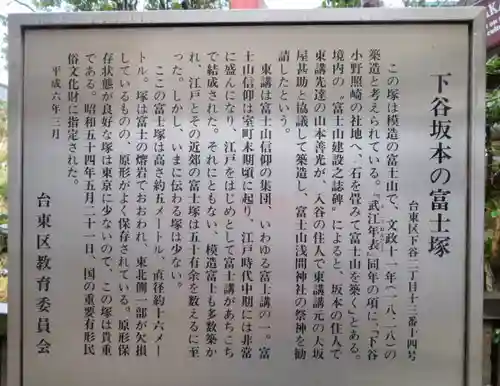 下谷坂本の富士塚
台東区下谷二丁目十三番十四号
この塚は模造の富士山で、文政十一年（一八二八）の
築造と考えられている。『武江年表』同年の項に、「下谷
小野照崎の社地へ、石を畳みて富士山を築く」とある。
境内の『富士山建設之誌碑』によると、坂本の住人で
東講先達の山本善光が、入谷の住人で東講講元の大坂
屋甚助と協議して築造し、富士山浅間神社の祭神を勧
請したという。
東講は富士山信仰の集団、いわゆる富士講の一。富
士山信仰は室町末期頃に起り、江戸時代中期には非常
に盛んになり、江戸をはじめとして富士講があちこち
で結成された。それにともない、模造富士も多数築か
れ、江戸とその近郊の富士塚は五十有余を数えるに至
った。しかし、いまに伝わる塚は少ない。
ここの富士塚は高さ約五メートル、直径約十六メー
トル。塚は富士の熔岩でおおわれ、東北側一部が欠損
しているものの、原形がよく保存されている。原形保
存状態が良好な塚は東京に少ないので、この塚は貴重
である。昭和五十四年五月二十一日、国の重要有形民
俗文化財に指定された。
平成六年三月
台東区教育委員会